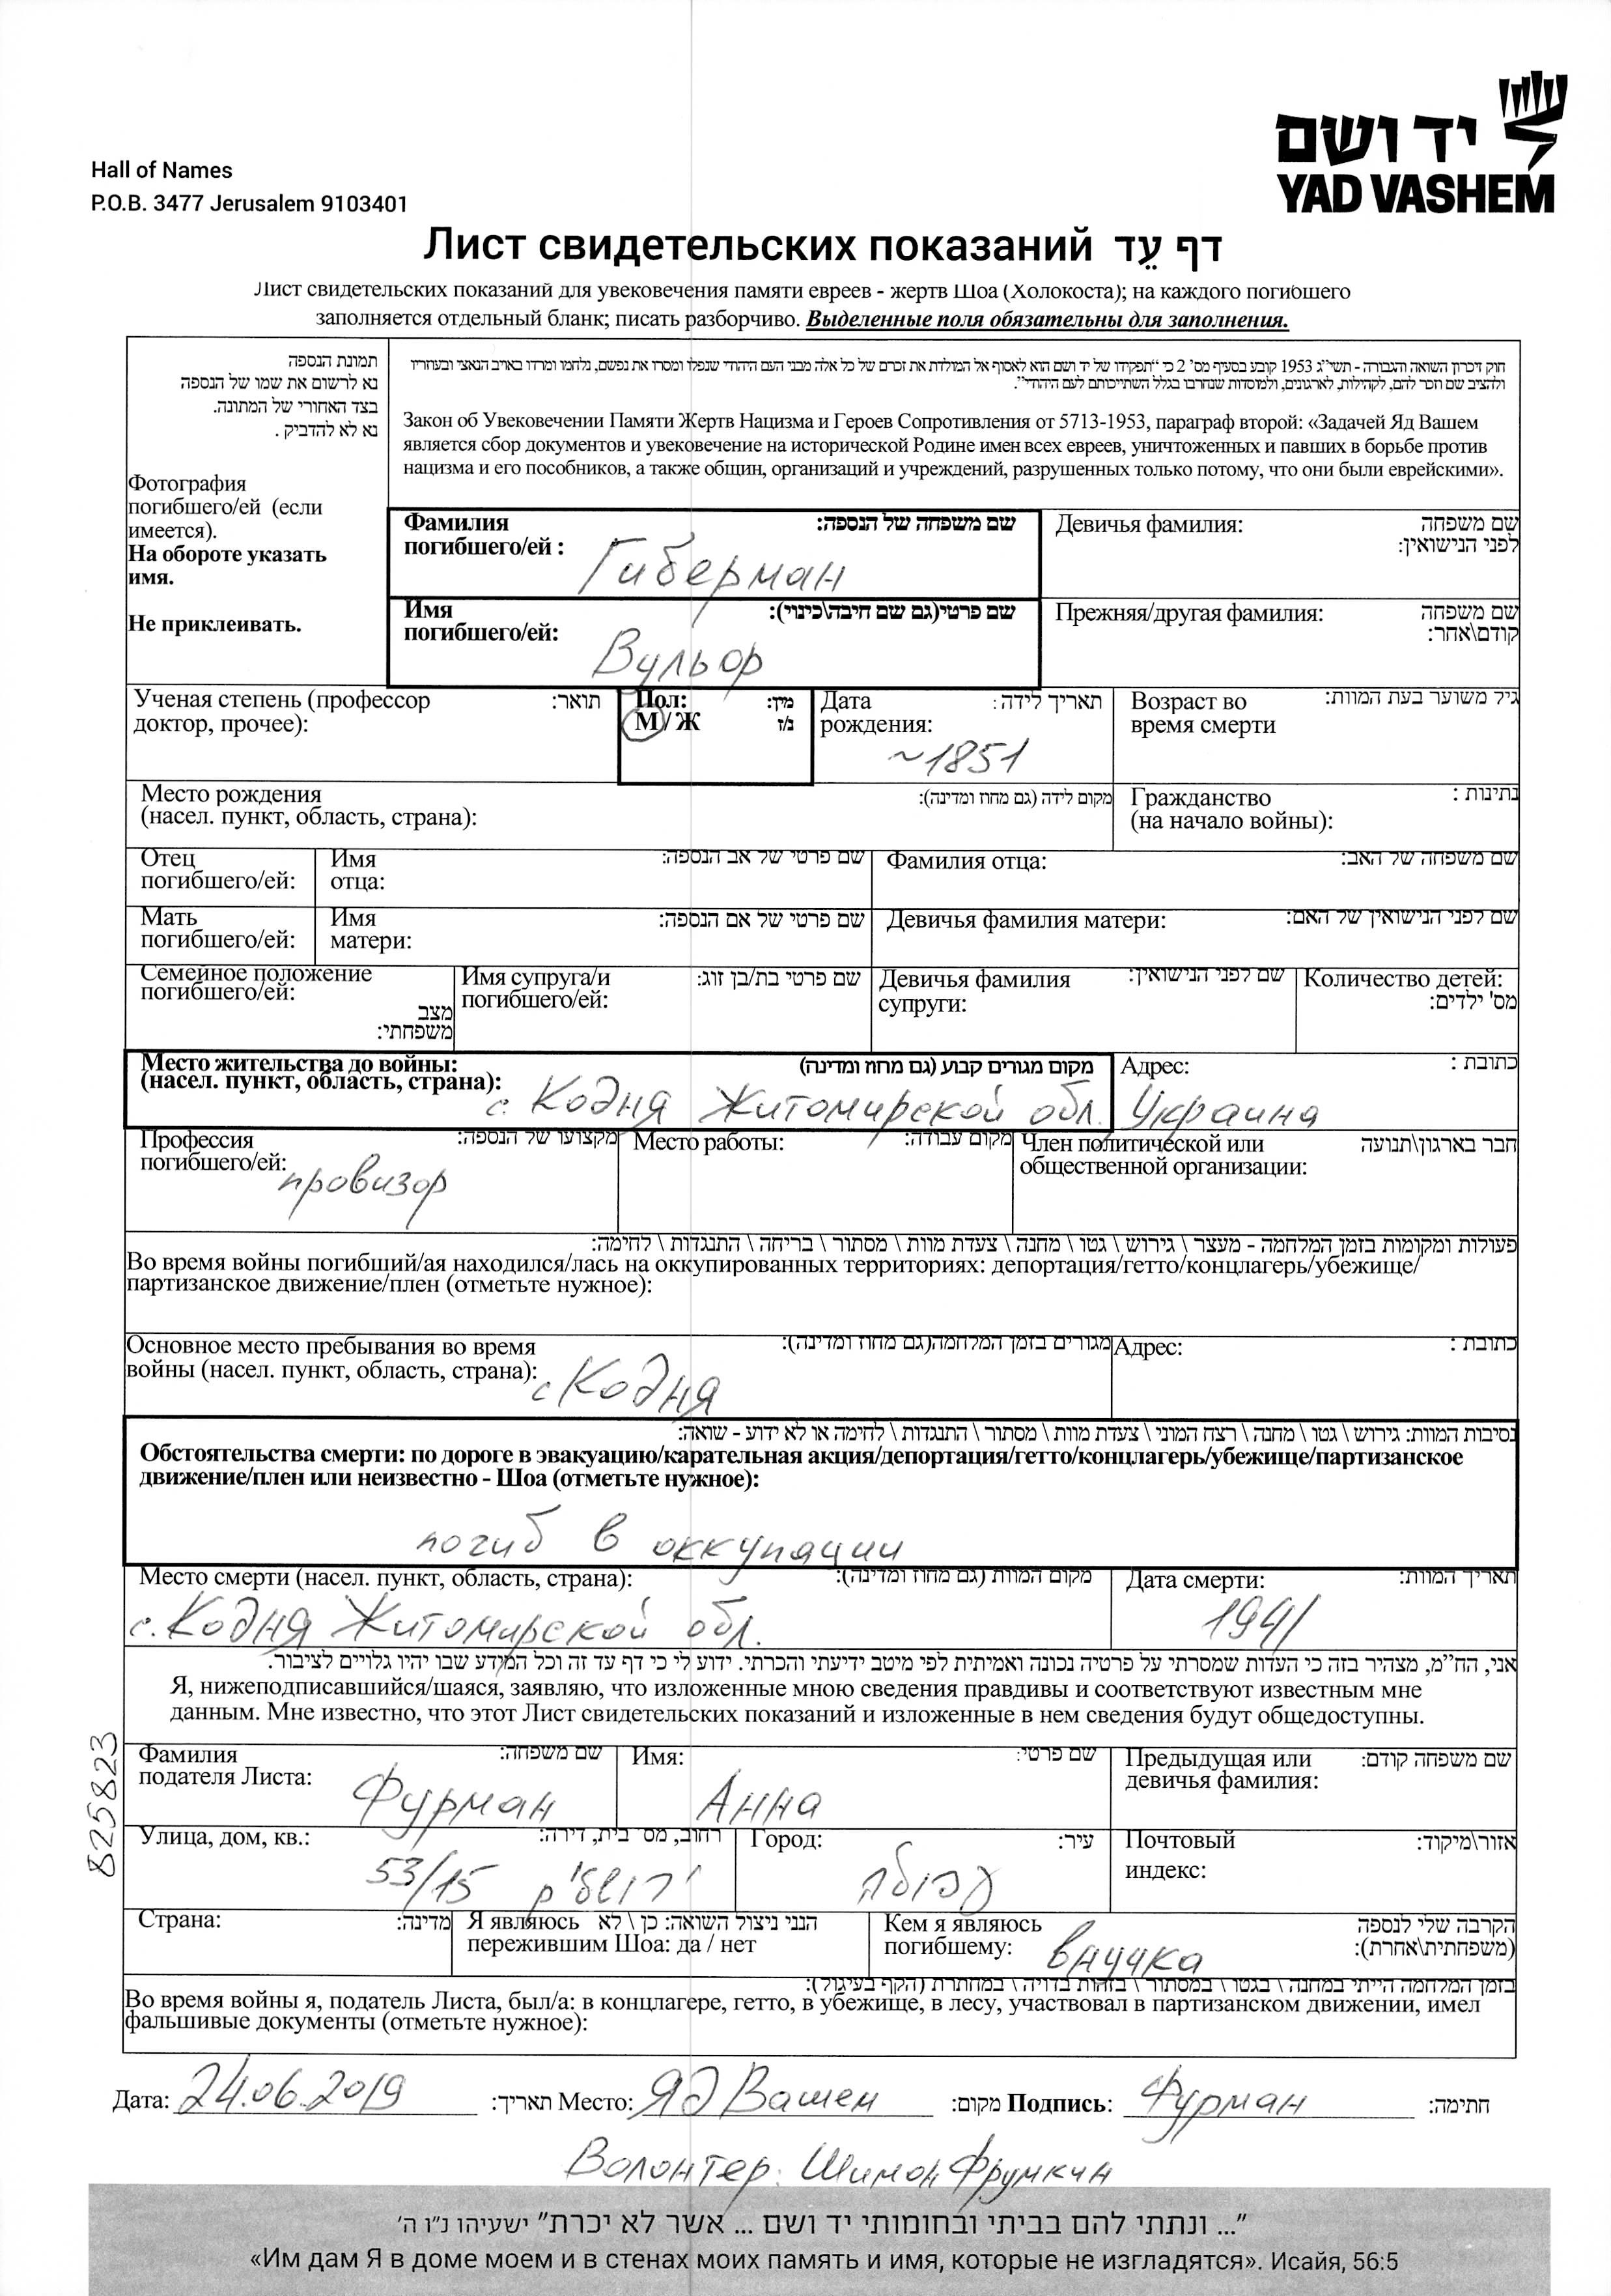 יד ושם
YAD VASHEM
Hall of Names
P.O.B. 3477 Jerusalem 9103401
Лист свидетельских показаний דף עֵד
Лист свидетельских показаний для увековечения памяти евреев - жертв Шоа (Холокоста); на каждого погибшего
заполняется отдельный бланк; писать разборчиво. Выделенные поля обязательны для заполнения.
תמונת הנספה
נא לרשום את שמו של הנספה
בצד האחורי של המתונה.
נא לא להדביק .
Фотография
погибшего/ей (если
имеется).
На обороте указать
имя.
Не приклеивать.
חוק זיכרון השואה והגבורה - תשי"ג 1953 קובע בסעיף מס' 2 כי "תפקידו של יד ושם הוא לאסוף אל המולדת את זכרם של כל אלה מבני העם היהודי שנפלו ומסרו את נפשם, נלחמו ומרדו באויב הנאצי ובעוזריו
ולהציב שם וזכר להם, לקהילות, לארגונים, ולמוסדות שנחרבו בגלל השתייכותם לעם היהודי".
Закон об Увековечении Памяти Жертв Нацизма и Героев Сопротивления от 5713-1953, параграф второй: «Задачей Яд Вашем
является сбор документов и увековечение на исторической Родине имен всех евреев, уничтоженных и павших в борьбе против
нацизма и его пособников, а также общин, организаций и учреждений, разрушенных только потому, что они были еврейскими».
Фамилия שם משפחה של הנספה:
погибшего/ей :
Гиберман
Девичья фамилия: שם משפחה
לפני הנישואין:
Имя שם פרטי(גם שם חיבה\כינוי):
погибшего/ей:
Вульор
Прежняя/другая фамилия: שם משפחה
קודם\אחר:
Ученая степень (профессор תואר:
доктор, прочее):
Пол: מין:
М / Ж ז/נ
Дата תאריך לידה :
рождения:
~1851
Возраст во גיל משוער בעת המוות:
время смерти
Место рождения מקום לידה (גם מחוז ומדינה):
(насел. пункт, область, страна):
Гражданство נתינות :
(на начало войны):
Отец
погибшего/ей:
Имя שם פרטי של אב הנספה:
отца:
Фамилия отца: שם משפחה של האב:
Мать
погибшего/ей:
Имя שם פרטי של אם הנספה:
матери:
Девичья фамилия матери: שם לפני הנישואין של האם:
Семейное положение
погибшего/ей:
מצב
משפחתי:
Имя супруга/и שם פרטי בת/בן זוג:
погибшего/ей:
Девичья фамилия שם לפני הנישואין:
супруги:
Количество детей:
מס' ילדים:
Место жительства до войны: מקום מגורים קבוע (גם מחוז ומדינה)
(насел. пункт, область, страна):
с. Кодня Житомирской обл.
Адрес: כתובת :
Украина
Профессия מקצועו של הנספה:
погибшего/ей:
провизор
Место работы: מקום עבודה:
Член политической или חבר בארגון\תנועה
общественной организации:
פעולות ומקומות בזמן המלחמה - מעצר \ גירוש \ גטו \ מחנה \ צעדת מוות \ מסתור \ בריחה \ התנגדות \ לחימה:
Во время войны погибший/ая находился/лась на оккупированных территориях: депортация/гетто/концлагерь/убежище/
партизанское движение/плен (отметьте нужное):
Основное место пребывания во время מגורים בזמן המלחמה(גם מחוז ומדינה):
войны (насел. пункт, область, страна):
с Кодня
Адрес: כתובת :
נסיבות המוות: גירוש \ גטו \ מחנה \ רצח המוני \ צעדת מוות \ מסתור \ התנגדות \ לחימה או לא ידוע - שואה:
Обстоятельства смерти: по дороге в эвакуацию/карательная акция/депортация/гетто/концлагерь/убежище/партизанское
движение/плен или неизвестно - Шоа (отметьте нужное):
погиб в оккупации
Место смерти (насел. пункт, область, страна): מקום המוות (גם מחוז ומדינה):
с. Кодня Житомирской обл.
Дата смерти: תאריך המוות:
1941
אני, הח"מ, מצהיר בזה כי העדות שמסרתי על פרטיה נכונה ואמיתית לפי מיטב ידיעתי והכרתי. ידוע לי כי דף עד זה וכל המידע שבו יהיו גלויים לציבור.
Я, нижеподписавшийся/шаяся, заявляю, что изложенные мною сведения правдивы и соответствуют известным мне
данным. Мне известно, что этот Лист свидетельских показаний и изложенные в нем сведения будут общедоступны.
825823
Фамилия שם משפחה:
подателя Листа:
Фурман
Имя: שם פרטי:
Анна
Предыдущая или שם משפחה קודם:
девичья фамилия:
Улица, дом, кв.: רחוב, מס' בית, דירה:
53/15
Город: עיר:
עפולה
Почтовый אזור\מיקוד:
индекс:
Страна: מדינה:
Я являюсь הנני ניצול השואה: כן \ לא
пережившим Шоа: да / нет
Кем я являюсь הקרבה שלי לנספה
погибшему: (משפחתית\אחרת):
внучка
בזמן המלחמה הייתי במחנה \ בגטו \ במסתור \ בזהות בדויה \ במחתרת (הקף בעיגול):
Во время войны я, податель Листа, был/а: в концлагере, гетто, в убежище, в лесу, участвовал в партизанском движении, имел
фальшивые документы (отметьте нужное):
Дата: 24.06.2019 תאריך: Место: Яд Вашем מקום: Подпись: Фурман חתימה:
Волонтер: Шимон Фрумкин
"... ונתתי להם בביתי ובחומותי יד ושם ... אשר לא יכרת" ישעיהו נ"ו ה'
«Им дам Я в доме моем и в стенах моих память и имя, которые не изгладятся». Исайя, 56:5